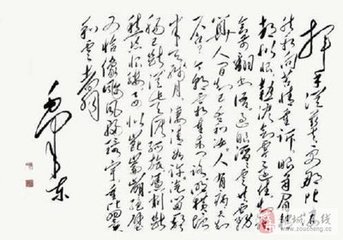 挥手从兹去更那堪凄
然相向苦情重诉眼角眉
都似恨热泪欲零还住知误
会前翻书语过眼滔滔云共雾
算人间知己吾和汝人有病天知
否今朝霜重东门路照横塘
半天残月凄清如许汽笛一声
肠已断从此天涯孤旅凭割断
愁思恨缕要似昆仑崩绝壁
又恰像台风扫寰宇重比翼
和云翥
毛泽东
在线
www.zoucheng.cc